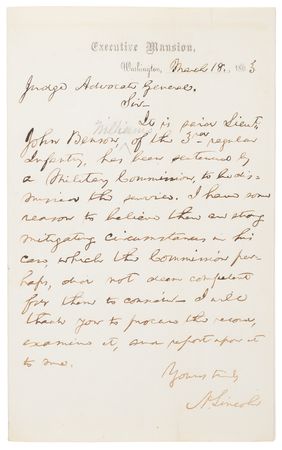 Executive Mansion,
Washington, March 18, 1863
Judge Advocate General.
Sir—
It is said Lieut.
John Benson, Williams of the 3rd regular
Infantry, has been sentenced by
a Military Commission, to be dis-
missed the service. I have some
reason to believe there are strong
mitigating circumstances in his
case, which the Commission per-
haps, did not deem competent
for them to consider. I will
thank you to procure the record,
examine it, and report upon it
to me.
Yours truly
A. Lincoln